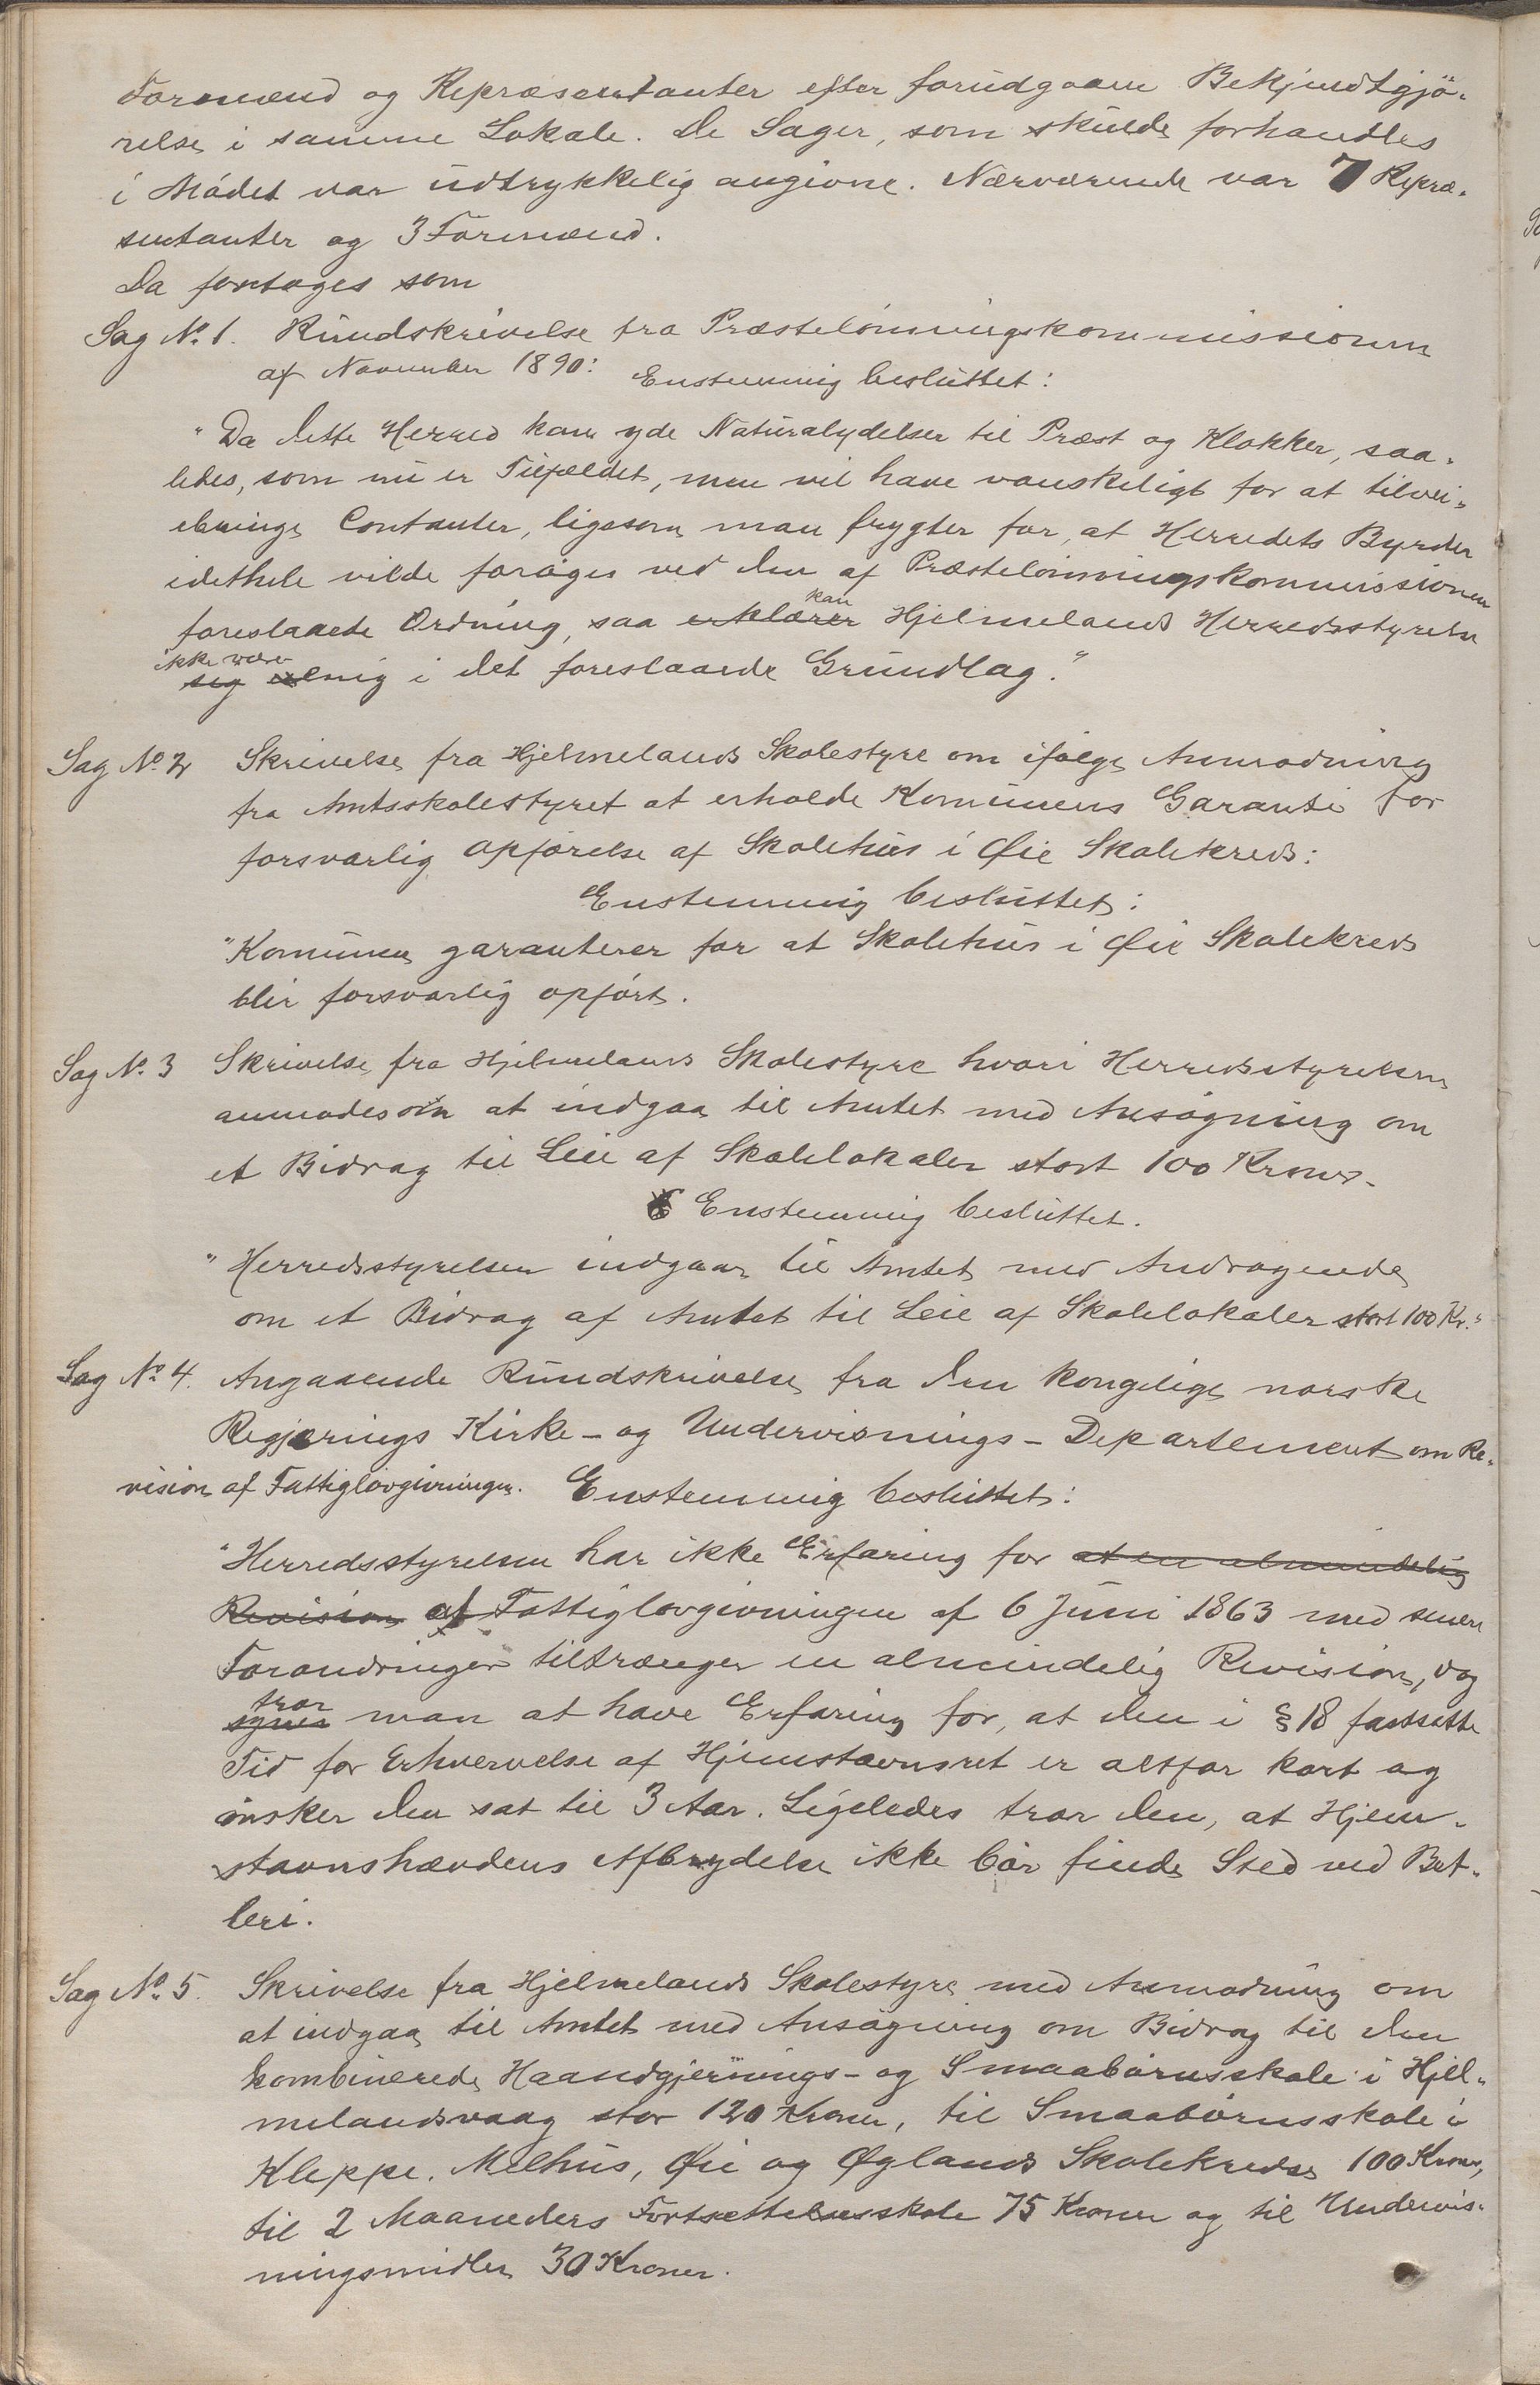 Formænd og Repræsentanter efter forudgaaen Bekjendtgjö-
relse i samme Lokale. De Sager, som skulde forhandles
i Mödet var udtrykkelig angivne. Nærværende var 7 Repræ-
sentanter og 3 Formænd.
Da foretoges som
Sag No. 1. Rundskrivelse fra Præstelönningskommissionen
af November 1890: Enstemmig besluttet:
"Da dette Herred kan yde Naturalydelser til Præst og Klokker, saa-
ledes, som nu er Tilfældet, men vil have vanskeligt for at tilvei-
ebringe Contanter, ligesom man frygter for, at Herredets Byrder
idethele vilde foröges ved den af Præstelönningskommissionen
foreslaaede Ordning, saa erklærer kan Hjelmelands Herredsstyrelse
ikke være sig enig i det foreslaaede Grundlag."
Sag No. 2 Skrivelse fra Hjelmelands Skolestyre om ifölge Anmodning
fra Amtsskolestyret at erholde Komunens Garanti for
forsvarlig Opförelse af Skolehus i Øie Skolekreds:
Enstemmig besluttet:
"Komunen garanterer for at Skolehus i Øie Skolekreds
blir forsvarlig opfört.
Sag No. 3 Skrivelse fra Hjelmelands Skolestyre hvori Herredsstyrelsen
anmodes om at indgaa til Amtet med Ansögning om
et Bidrag til Leie af Skolelokaler stort 100 Kroner.
Enstemmig besluttet.
"Herredsstyrelsen indgaar til Amtet med Andragende
om et Bidrag af Amtet til Leie af Skolelokaler stort 100 Kr."
Sag No. 4. Angaaende Rundskrivelse fra den kongelige norske
Regjerings Kirke- og Undervisnings-Departement om Re-
vision af Fattiglovgivningen. Enstemmig besluttet:
"Herredsstyrelsen har ikke Erfaring for at en almindelig
Revision af Fattiglovgivningen af 6 Juni 1863 med senere
Forandringer tiltrænger en almindelig Revision, dog
synes tror man at have Erfaring for, at den i § 18 fastsatte
Tid for Erhvervelse af Hjemstavnsret er altfor kort og
önsker den sat til 3 Aar. Ligeledes tror den, at Hjem-
stavnshævdens Afbrydelse ikke bör finde Sted ved Bet-
leri.
Sag No. 5. Skrivelse fra Hjelmelands Skolestyre med Anmodning om
at indgaa til Amtet med Ansögning om Bidrag til den
kombinerede Haandgjernings- og Smaabörnsskole i Hjel-
melandsvaag stor 120 Kroner, til Smaabörnsskole i
Kleppe, Melhus, Øie og Øglands Skolekredse 100 Kroner,
til 2 Maaneders Fortsettelsesskole 75 Kroner og til Undervis-
ningsmidler 30 Kroner.